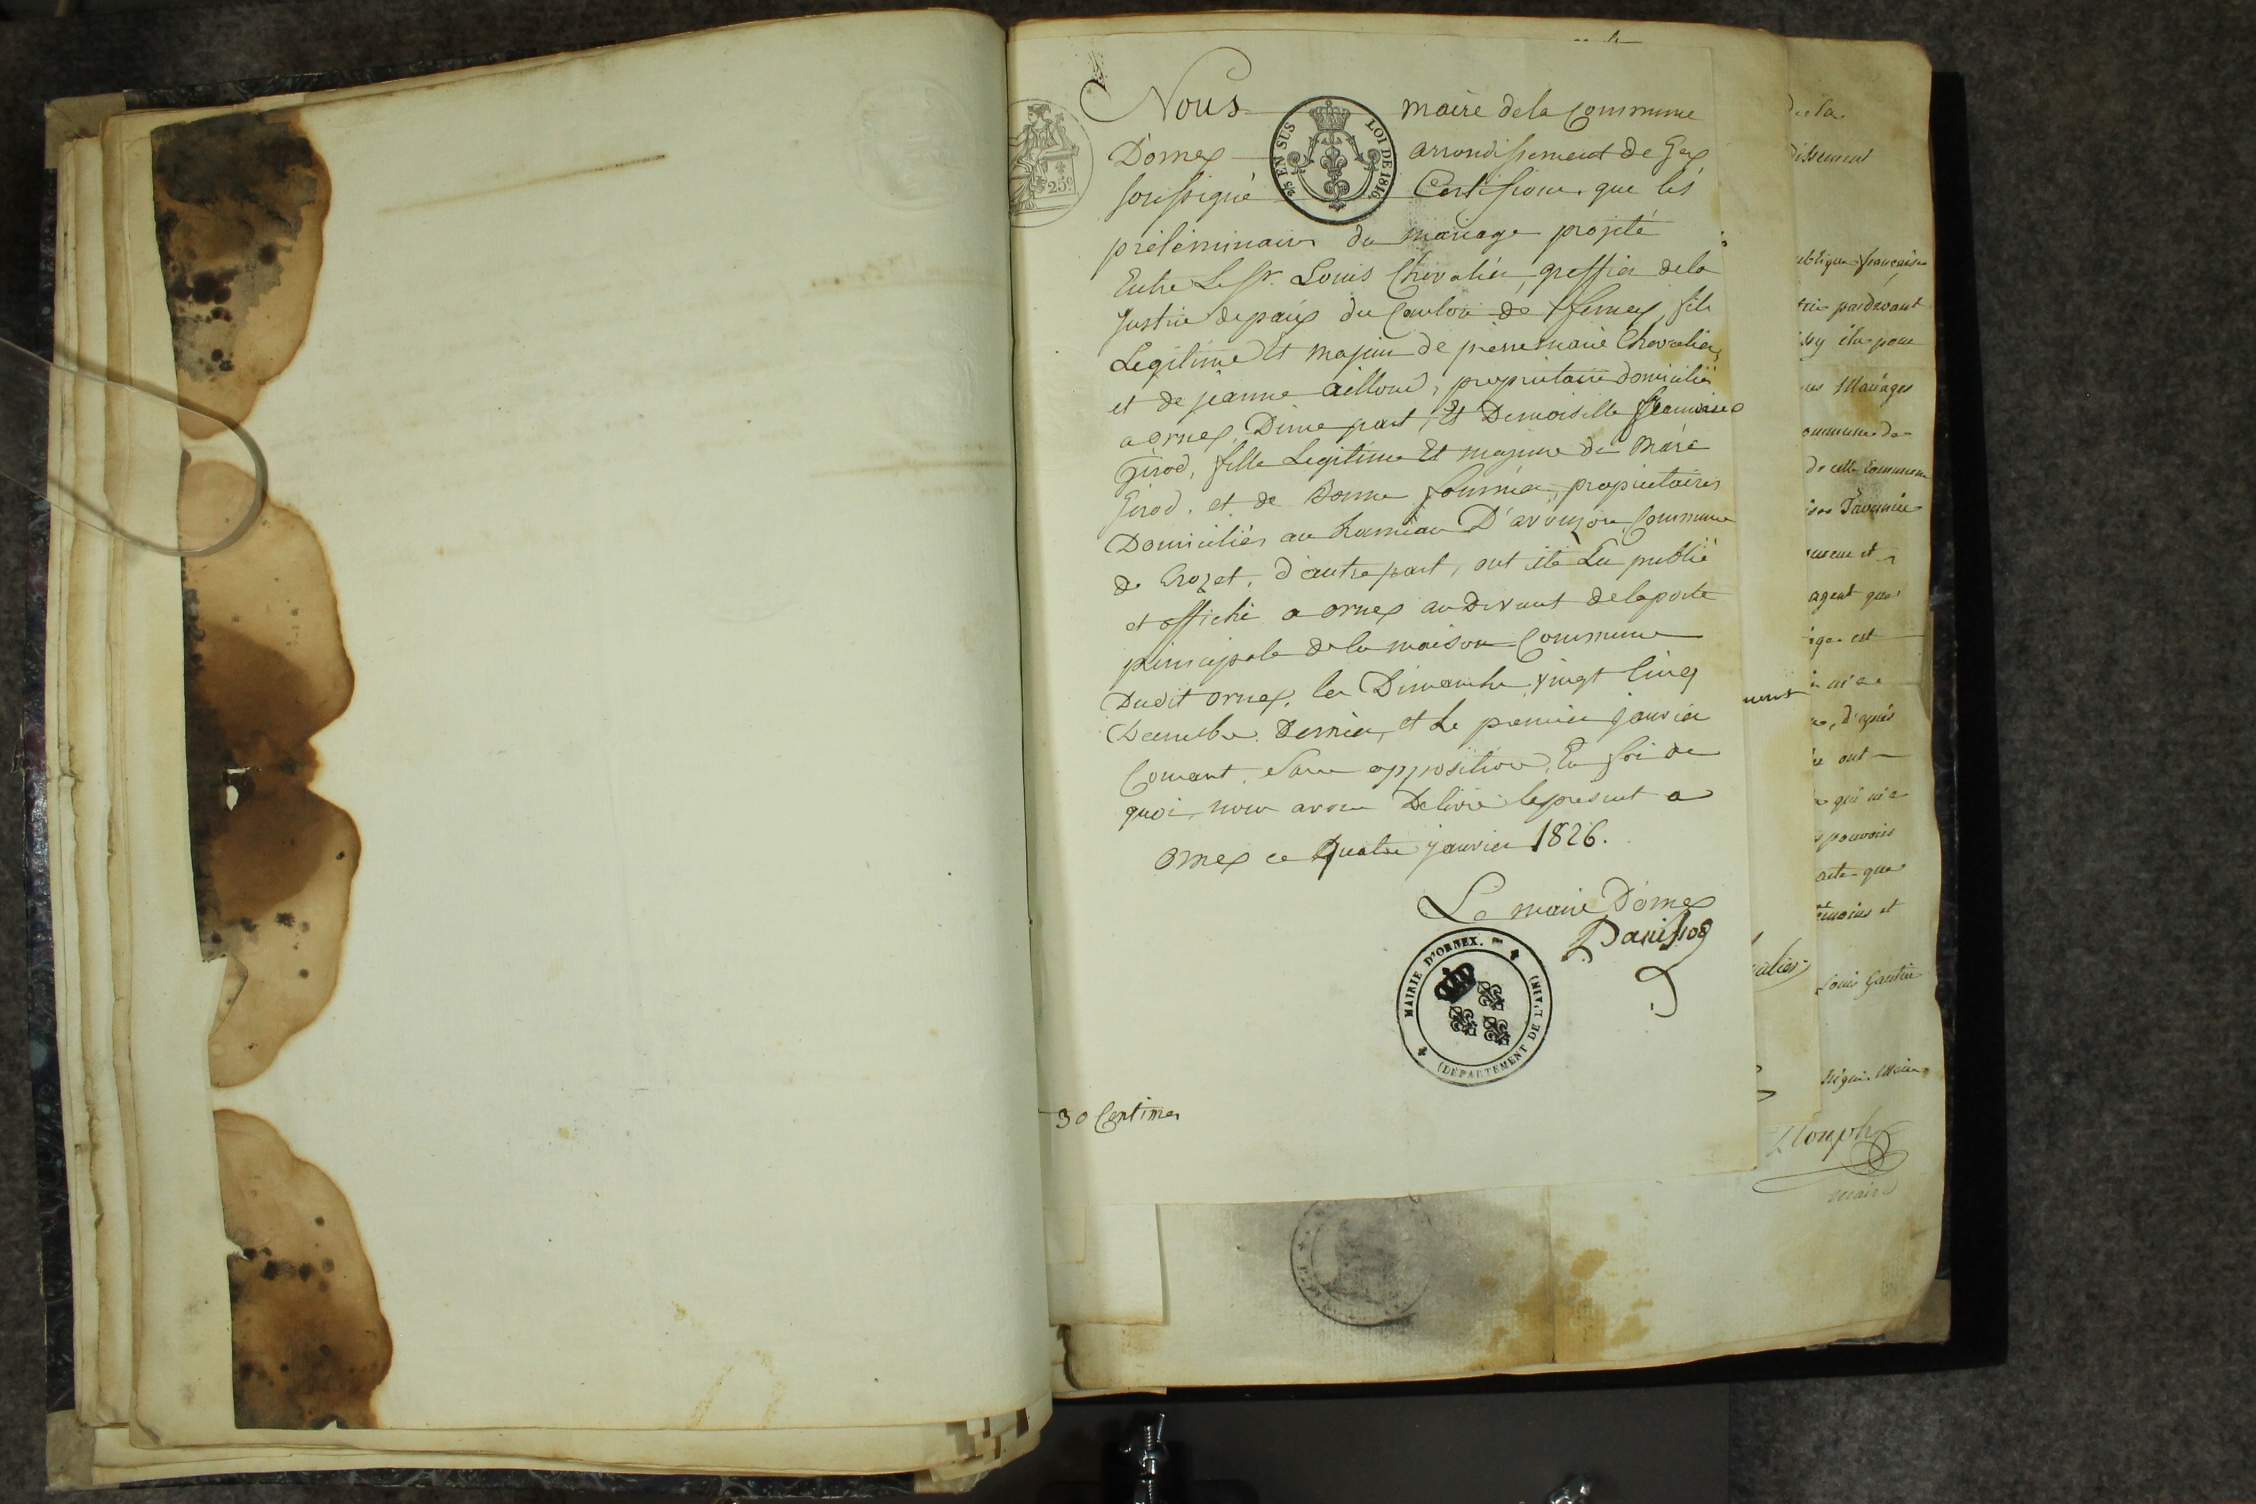 Nous maire de la Commune
D'ornex arrondissement de Gex
soussigné Certifions que les
préliminaires du mariage projeté
Entre Le Sr. Louis Chevalier, greffier de la
Justice de paix du Canton de ferney, fils
Legitime Et majeur de pierre marie Chevalier,
et de jeanne ailloud, propriétaire domicilié
a ornex, D'une part, Et Demoiselle françoise
Girod, fille Legitime Et majeure de Marc
Girod, et de Bonne fournier, propriétaires
Domiciliés au hameau D'avouzon Commune
de Crozet, d'autre part, ont été Lu publié
et affiché a ornex au Devant de la porte
principale de la maison Commune
Dudit ornex, les Dimanche vingt Cinq
Decembre Dernier, et Le premier janvier
Courant, sans opposition, En foi de
quoi, nous avons Delivré le present a
ornex ce Quatre janvier 1826.
Le maire D'ornex
25 EN SUS
LOI DE 1816
25c.
MAIRIE D'ORNEX.
(DÉPARTEMENT DE L'AIN)
30 Centimes
ublique française
pardevant
élu pour
Mariages
ommune de
de cette Commune
agent que
est
d'après
ont
qui
pouvoirs
acte que
témoins et
Louis
maire